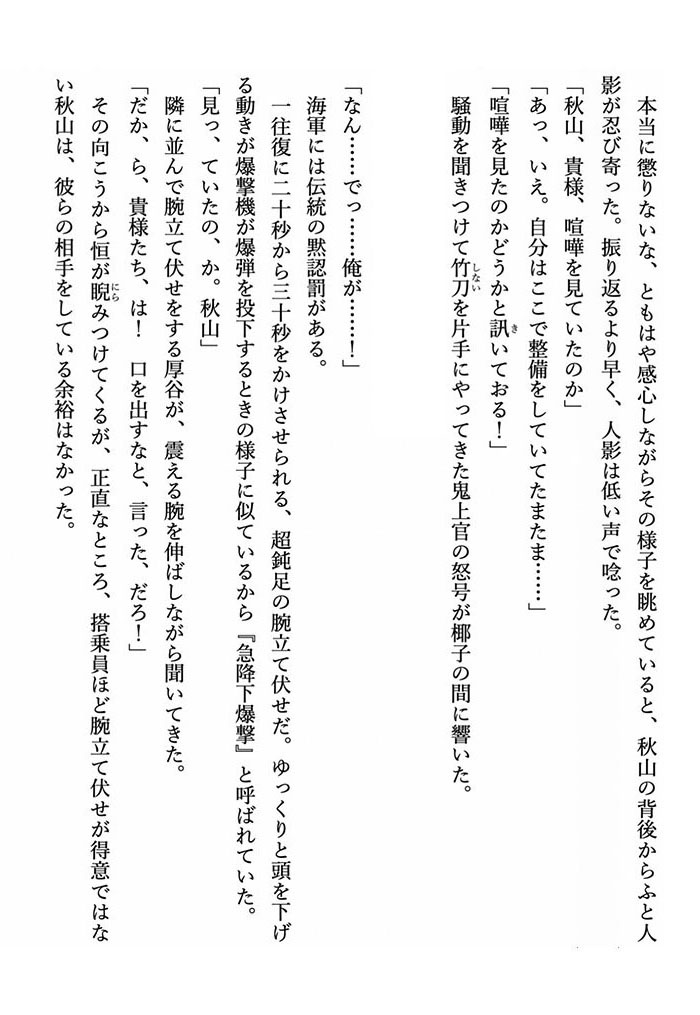 本当に懲りないな、ともはや感心しながらその様子を眺めていると、秋山の背後からふと人
影が忍び寄った。振り返るより早く、人影は低い声で唸った。
「秋山、貴様、喧嘩を見ていたのか」
「あっ、いえ。自分はここで整備をしていてたまたま……」
「喧嘩を見たのかどうかと訊いておる！」
騒動を聞きつけて竹刀を片手にやってきた鬼上官の怒号が椰子の間に響いた。
「なん……でっ……俺が……！」
海軍には伝統の黙認罰がある。
一往復に二十秒から三十秒をかけさせられる、超鈍足の腕立て伏せだ。ゆっくりと頭を下げ
る動きが爆撃機が爆弾を投下するときの様子に似ているから『急降下爆撃』と呼ばれていた。
「見っ、ていたの、か。秋山」
隣に並んで腕立て伏せをする厚谷が、震える腕を伸ばしながら聞いてきた。
「だか、ら、貴様たち、は！　口を出すなと、言った、だろ！」
その向こうから恒が睨みつけてくるが、正直なところ、搭乗員ほど腕立て伏せが得意ではな
い秋山は、彼らの相手をしている余裕はなかった。